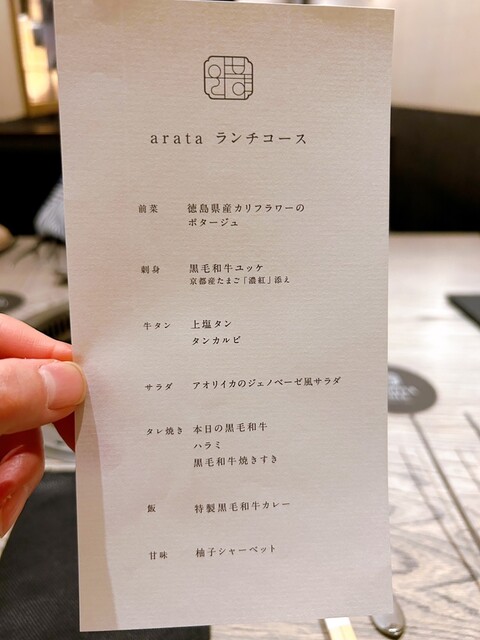 arata ランチコース
前菜 徳島県産カリフラワーの
ポタージュ
刺身 黒毛和牛ユッケ
京都産たまご「濃紅」添え
牛タン 上塩タン
タンカルビ
サラダ アオリイカのジェノベーゼ風サラダ
タレ焼き 本日の黒毛和牛
ハラミ
黒毛和牛焼きすき
飯 特製黒毛和牛カレー
甘味 柚子シャーベット